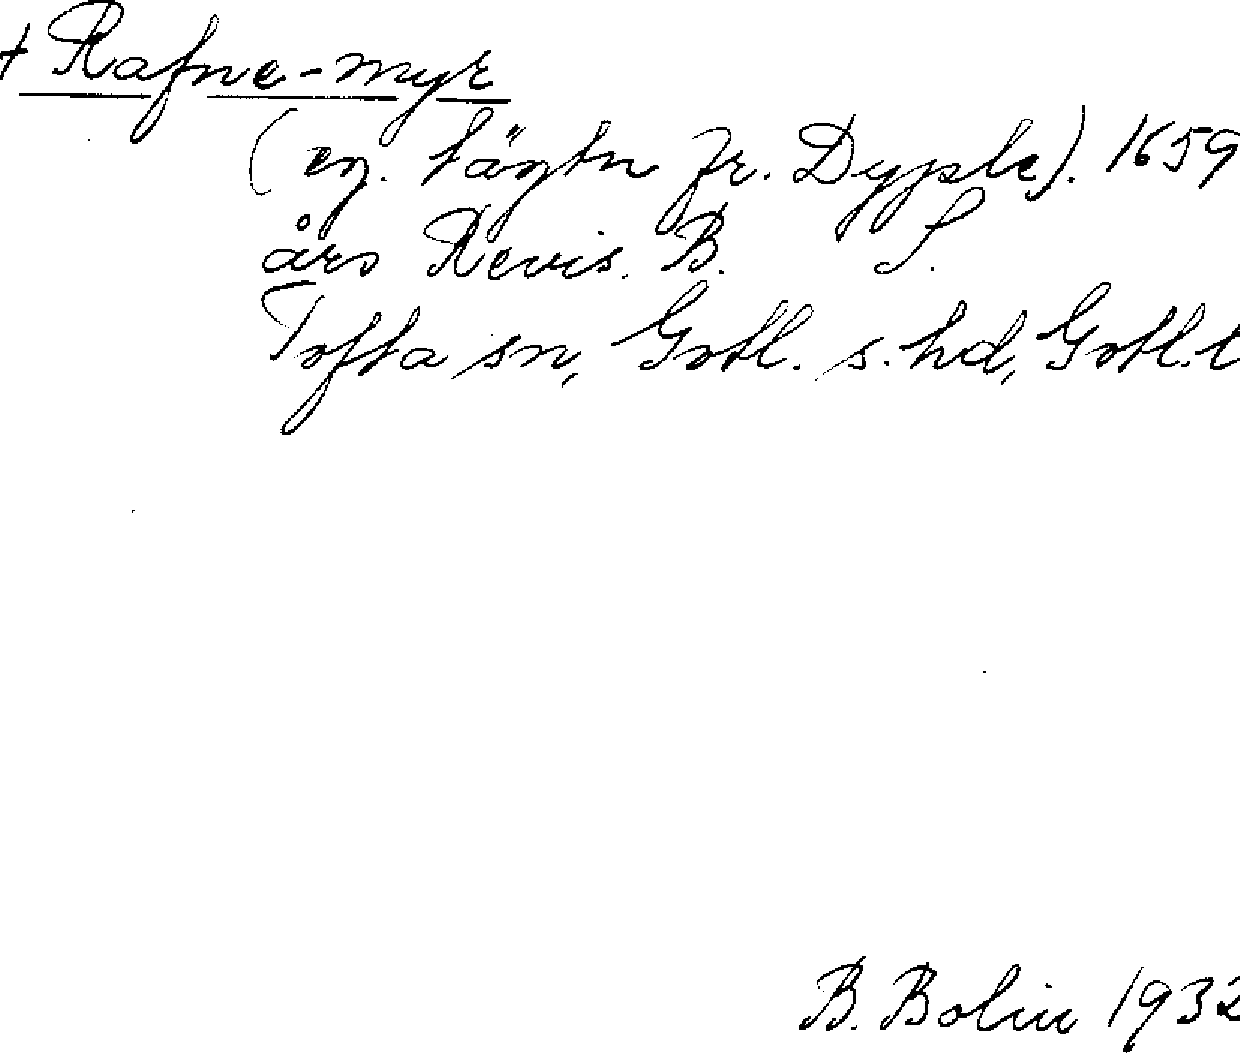 + Rafne-myr
(eg. tägtn fr. Dyple). 1659
års Revis. B. S.
Tofta sn, Gotl. s. hd, Gotl. l
B. Bolin 1932